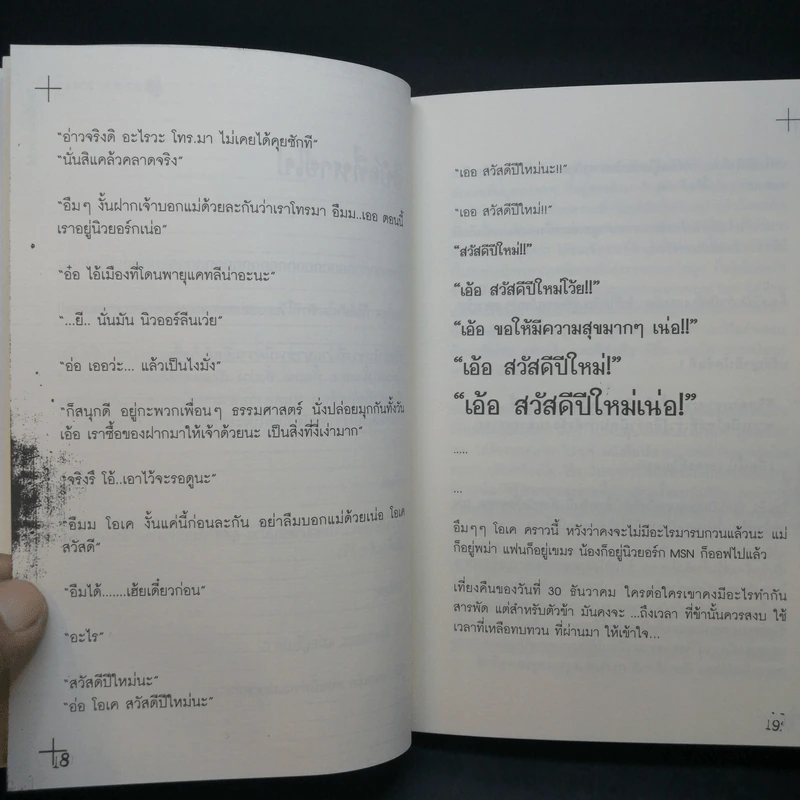 “อ่าวจริงดิ อะไรวะ โทร.มา ไม่เคยได้คุยซักที”
“นั่นสิแคล้วคลาดจริง”
“อืมๆ งั้นฝากเจ้าบอกแม่ด้วยละกันว่าเราโทรมา อืมม..เออ ตอนนี้
เราอยู่นิวยอร์กเน่อ”
“อ๋อ ไอ้เมืองที่โดนพายุแคทลีน่าอะนะ”
“...ยี.. นั่นมัน นิวออร์ลีนเว่ย”
“อ่อ เออว่ะ... แล้วเป็นไงมั่ง”
“ก็สนุกดี อยู่กะพวกเพื่อนๆ ธรรมศาสตร์ นั่งปล่อยมุกกันทั้งวัน
เอ้อ เราซื้อของฝากมาให้เจ้าด้วยนะ เป็นสิ่งที่งี่เง่ามาก”
“จริงรึ โอ้..เอาไว้จะรอดูนะ”
“อืมม โอเค งั้นแค่นี้ก่อนละกัน อย่าลืมบอกแม่ด้วยเน่อ โอเค
สวัสดี”
“อืมได้.......เฮ้ยเดี๋ยวก่อน”
“อะไร”
“สวัสดีปีใหม่นะ”
“อ่อ โอเค สวัสดีปีใหม่นะ”
18
“เออ สวัสดีปีใหม่นะ!!”
“เออ สวัสดีปีใหม่!!”
“สวัสดีปีใหม่!!”
“เอ้อ สวัสดีปีใหม่โว้ย!!”
“เอ้อ ขอให้มีความสุขมากๆ เน่อ!!”
“เอ้อ สวัสดีปีใหม่!”
“เอ้อ สวัสดีปีใหม่เน่อ!”
.....
...
อืมๆๆ โอเค คราวนี้ หวังว่าคงจะไม่มีอะไรมารบกวนแล้วนะ แม่
ก็อยู่พม่า แฟนก็อยู่เขมร น้องก็อยู่นิวยอร์ก MSN ก็ออฟไปแล้ว
เที่ยงคืนของวันที่ 30 ธันวาคม ใครต่อใครเขาคงมีอะไรทำกัน
สารพัด แต่สำหรับตัวข้า มันคงจะ ...ถึงเวลา ที่ข้านั้นควรสงบ ใช้
เวลาที่เหลือทบทวน ที่ผ่านมา ให้เข้าใจ...
19